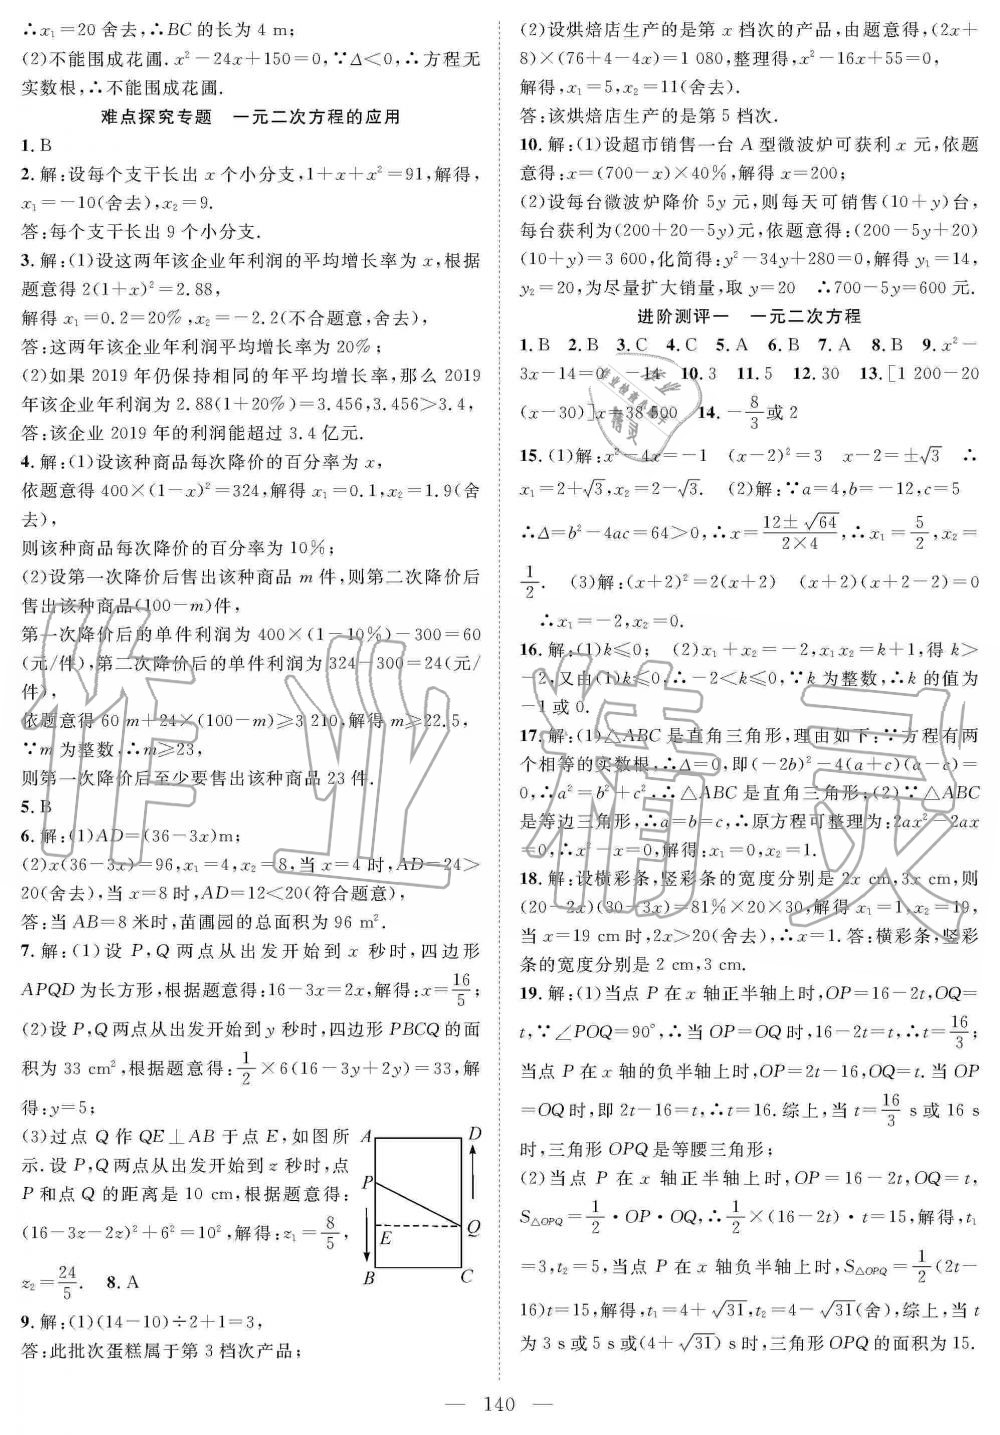 ∴x₁=20舍去,∴BC的长为4 m;
(2)不能围成花圃.x²-24x+150=0,∵Δ<0,∴方程无
实数根,∴不能围成花圃.
难点探究专题 一元二次方程的应用
1.B
2.解:设每个支干长出x个小分支,1+x+x²=91,解得,
x₁=-10(舍去),x₂=9.
答:每个支干长出9个小分支.
3.解:(1)设这两年该企业年利润的平均增长率为x,根据
题意得2(1+x)²=2.88,
解得x₁=0.2=20%,x₂=-2.2(不合题意,舍去),
答:这两年该企业年利润平均增长率为20%;
(2)如果2019年仍保持相同的年平均增长率,那么2019
年该企业年利润为2.88(1+20%)=3.456,3.456>3.4,
答:该企业2019年的利润能超过3.4亿元.
4.解:(1)设该种商品每次降价的百分率为x,
依题意得400×(1-x)²=324,解得x₁=0.1,x₂=1.9(舍
去),
则该种商品每次降价的百分率为10%;
(2)设第一次降价后售出该种商品m件,则第二次降价后
售出该种商品(100-m)件,
第一次降价后的单件利润为400×(1-10%)-300=60
(元/件),第二次降价后的单件利润为324-300=24(元/
件),
依题意得60m+24×(100-m)≥3 210,解得m≥22.5,
∵m为整数,∴m≥23,
则第一次降价后至少要售出该种商品23件.
5.B
6.解:(1)AD=(36-3x)m;
(2)x(36-3x)=96,x₁=4,x₂=8,当x=4时,AD=24>
20(舍去),当x=8时,AD=12<20(符合题意),
答:当AB=8米时,苗圃园的总面积为96 m².
7.解:(1)设P,Q两点从出发开始到x秒时,四边形
APQD为长方形,根据题意得:16-3x=2x,解得:x=16/5;
(2)设P,Q两点从出发开始到y秒时,四边形PBCQ的面
积为33 cm²,根据题意得:1/2×6(16-3y+2y)=33,解
得:y=5;
(3)过点Q作QE⊥AB于点E,如图所
示.设P,Q两点从出发开始到z秒时,点
P和点Q的距离是10 cm,根据题意得:
(16-3z-2z)²+6²=10²,解得:z₁=8/5,
z₂=24/5. 8.A
A D
P
E Q
B C
9.解:(1)(14-10)÷2+1=3,
答:此批次蛋糕属于第3档次产品;
(2)设烘焙店生产的是第x档次的产品,由题意得,(2x+
8)×(76+4-4x)=1 080,整理得,x²-16x+55=0,
解得,x₁=5,x₂=11(舍去).
答:该烘焙店生产的是第5档次.
10.解:(1)设超市销售一台A型微波炉可获利x元,依题
意得:x=(700-x)×40%,解得x=200;
(2)设每台微波炉降价5y元,则每天可销售(10+y)台,
每台获利为(200+20-5y)元,依题意得:(200-5y+20)
(10+y)=3 600,化简得:y²-34y+280=0,解得y₁=14,
y₂=20,为尽量扩大销量,取y=20 ∴700-5y=600元.
进阶测评一 一元二次方程
1.B 2.B 3.C 4.C 5.A 6.B 7.A 8.B 9.x²-
3x-14=0 -14 10.3 11.5 12.30 13.[1 200-20
(x-30)]x=38 500 14.-8/3或2
15.(1)解:x²-4x=-1 (x-2)²=3 x-2=±√3 ∴
x₁=2+√3,x₂=2-√3. (2)解:∵a=4,b=-12,c=5
∴Δ=b²-4ac=64>0,∴x=(12±√64)/(2×4),∴x₁=5/2,x₂=
1/2. (3)解:(x+2)²=2(x+2) (x+2)(x+2-2)=0
∴x₁=-2,x₂=0.
16.解:(1)k≤0; (2)x₁+x₂=-2,x₁x₂=k+1,得k>
-2,又由(1)k≤0,∴-2<k≤0,∵k为整数,∴k的值为
-1或0.
17.解:(1)△ABC是直角三角形,理由如下:∵方程有两
个相等的实数根,∴Δ=0,即(-2b)²-4(a+c)(a-c)=
0,∴a²=b²+c²,∴△ABC是直角三角形;(2)∵△ABC
是等边三角形,∴a=b=c,∴原方程可整理为:2ax²-2ax
=0,∴x²-x=0,解得:x₁=0,x₂=1.
18.解:设横彩条,竖彩条的宽度分别是2x cm,3x cm,则
(20-2x)(30-3x)=81%×20×30,解得x₁=1,x₂=19,
当x=19 cm时,2x>20(舍去),∴x=1.答:横彩条,竖彩
条的宽度分别是2 cm,3 cm.
19.解:(1)当点P在x轴正半轴上时,OP=16-2t,OQ=
t,∵∠POQ=90°,∴当OP=OQ时,16-2t=t,∴t=16/3;
当点P在x轴的负半轴上时,OP=2t-16,OQ=t.当OP
=OQ时,即2t-16=t,∴t=16.综上,当t=16/3 s或16 s
时,三角形OPQ是等腰三角形;
(2)当点P在x轴正半轴上时,OP=16-2t,OQ=t,
S△OPQ=1/2·OP·OQ,∴1/2×(16-2t)·t=15,解得,t₁
=3,t₂=5,当点P在x轴负半轴上时,S△OPQ=1/2(2t-
16)t=15,解得,t₁=4+√31,t₂=4-√31(舍),综上,当t
为3 s或5 s或(4+√31) s时,三角形OPQ的面积为15.
— 140 —
作业精灵